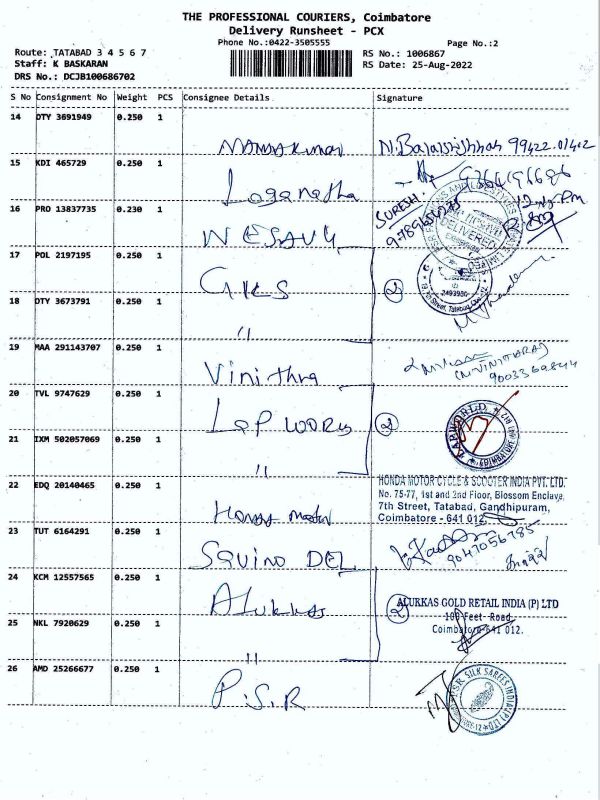 THE PROFESSIONAL COURIERS, Coimbatore
Delivery Runsheet - PCX
Phone No.:0422-3505555 Page No.:2
Route: TATABAD 3 4 5 6 7 RS No.: 1006867
Staff: K BASKARAN RS Date: 25-Aug-2022
DRS No.: DCJB100686702
S No Consignment No Weight PCS Consignee Details Signature
14 OTY 3691949 0.250 1
15 KDI 465729 0.250 1 Loganatha
16 PRO 13837735 0.230 1
SURESH.
DELIVERED
17 POL 2197195 0.250 1 GKS
18 OTY 3673791 0.250 1 "
19 MAA 291143707 0.250 1 Vinithra
9003369844
20 TVL 9747629 0.250 1 Lap world
2
21 IXM 502057069 0.250 1 "
22 EDQ 20140465 0.250 1 Honda motor
HONDA MOTOR CYCLE & SCOOTER INDIA PVT. LTD.
No. 75-77, 1st and 2nd Floor, Blossom Enclave,
7th Street, Tatabad, Gandhipuram,
Coimbatore - 641 012.
23 TUT 6164291 0.250 1 SQUINO DEL
9047056785
24 KCM 12557565 0.250 1 Alukkas
2
ALUKKAS GOLD RETAIL INDIA (P) LTD
100 Feet Road,
Coimbatore-641 012.
25 NKL 7920629 0.250 1 "
26 AMD 25266677 0.250 1 P.S.R